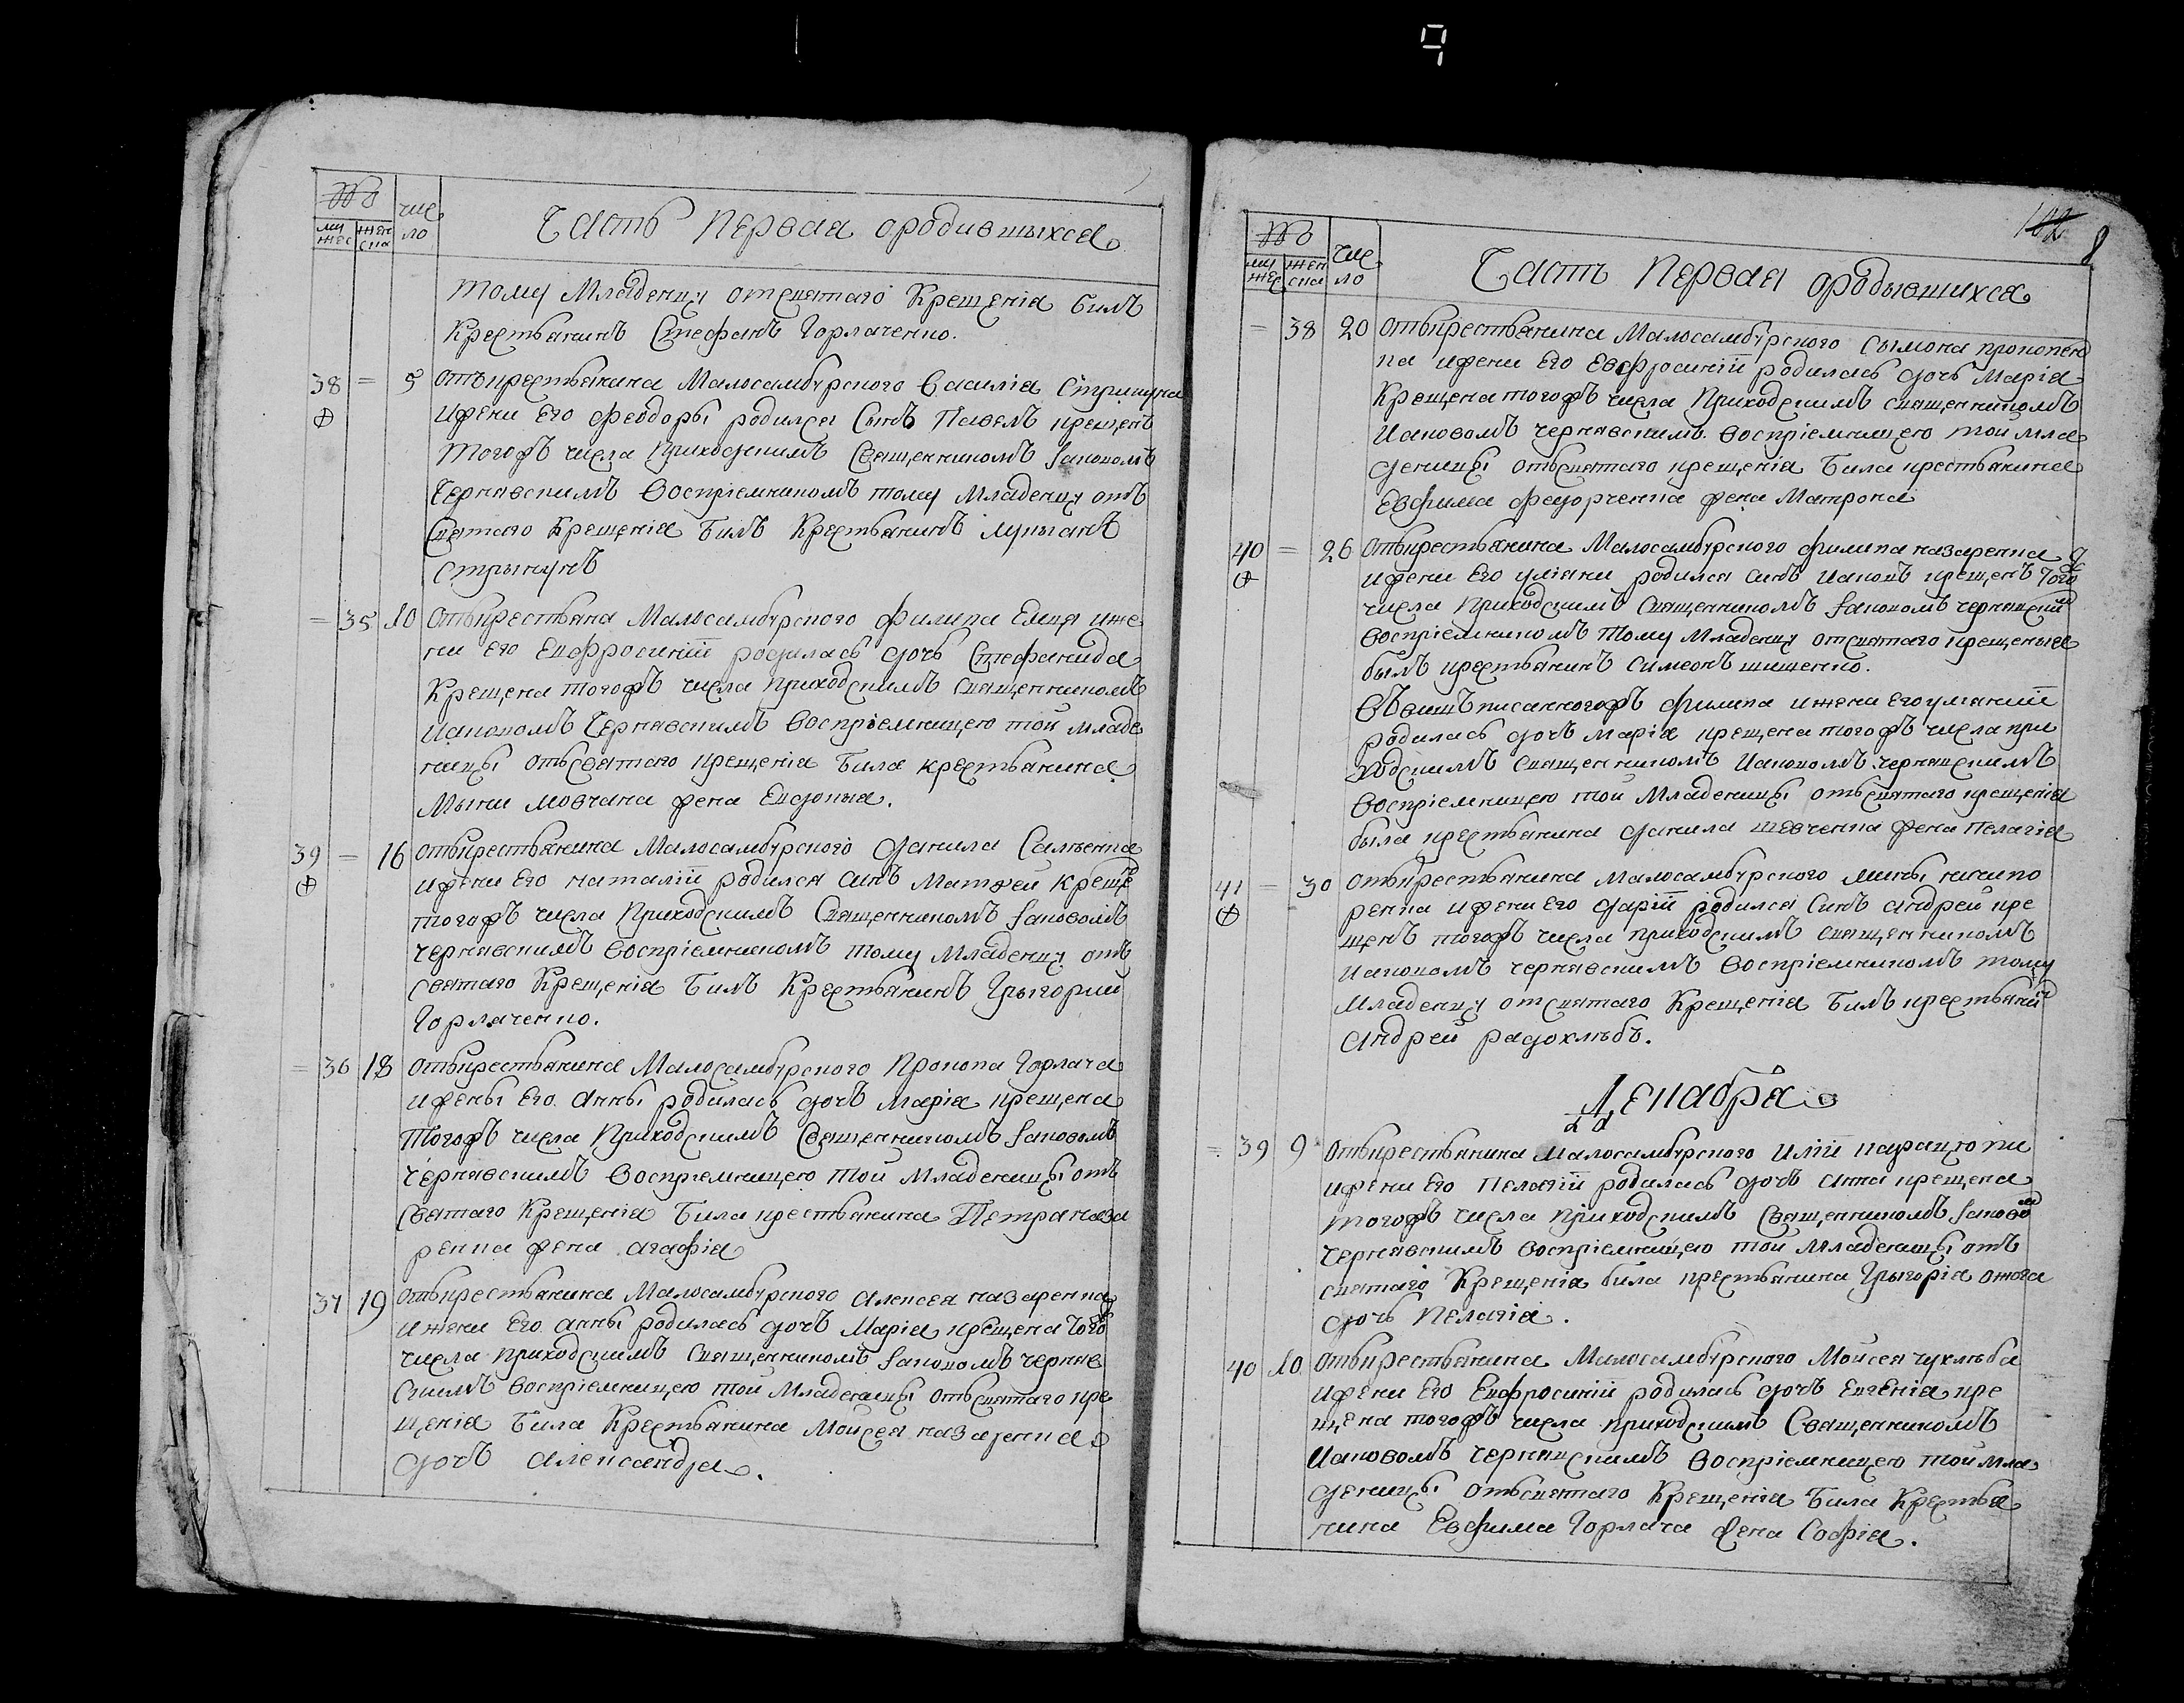 9
№
числ
ло
муж
жес
жен
ска
Часть Первая ородившыхся
тому Младенцу отсвятаго Крещенія билъ
Крестьянинъ Стефанъ Горлаченко.
38 = 5 отькрестьянина Малосамбурского Василія Стригуна
ижени Его Феодоры родился Сынъ Павелъ крещенъ
тогожъ числа Приходскимъ Священникомъ Іаковомъ
Чернявскимъ Воспріемникомъ тому Младенцу отъ
Святаго Крещенія Билъ Крестьянинъ Лукъянъ
Стрыгунъ
= 35 10 Отькрестьяна Малосамбурского Филипа Емця иже
ни Его Евфросиніи родилась дочь Стефанида
Крещена тогожъ числа приходскимъ священникомъ
Иаковомъ Чернявскимъ Воспріемницею той младе
ницы отьсвятаго крещенія Била крестьянина
Мыки мовчана жена Евдокия.
39 = 16 отькрестьянина Малосамбурского Данила
ижени Его наталіи родился синъ Матфей Креще
тогожъ числа Приходскимъ Священникомъ Іаковомъ
Чернявскимъ Воспріемникомъ тому Младенцу отъ
святаго Крещенія Билъ Крестьянинъ Грыгорий
Горлаченко.
= 36 18 отькрестьянина Малосамбурского Прокопа Горлача
иженьі Его Анны родилась дочь Марія крещена
Тогожъ числа Приходскимъ Священникомъ Іаковомъ
Чернявскимъ Воспріемницею той Младеницы отъ
Святаго Крещенія Била крестьянина Петра наза
ренка жена Агафія
37 19 отькрестьянина Малосамбурского Алексея назаренка
ижени Его Анны родилась дочъ Марія крещена Тогож
числа приходскимъ Священникомъ Іаковомъ черняв
скимъ Воспріемницею той Младеницы отьсвятаго кре
щенія Била Крестьянина Мойсея назаренка
дочъ Александра.
102 8
№
числ
ло
муж
жес
жен
ска
Часть Первая ородывшихся
= 38 20 отькрестьянина Малосамбурского Сымона прокопен
ка ижени Его Евфросиніи родилась дочь Марія
Крещена тогожъ числа Приходскимъ священникомъ
Иаковомъ чернявскимъ воспріемницею той мла
деници отьсвятаго крещенія Била крестьянина
Евфыма Федорченка жена Матрона
40 = 26 Отькрестьянина Малосамбурского Филипа назаренка
ижени Его уліяни родился синъ Иаковъ крещенъ Того ж
числа Приходскимъ Священникомъ Іаковомъ чернявским
воспріемникомъ тому Младенцу отсвятаго крещеныя
былъ крестьянинъ Симеонъ шишенко.
Отъвишъписанногожъ Филипа ижени Его улиянии
родилась дочъ марія крещена тогожъ числа при
ходскимъ священникомъ Иаковомъ чернявскимъ
воспріемницею той Младеницы отьсвятаго крещенія
была крестьянина Данила шевченка жена Пелагія
41 = 30 отькрестьянина Малосамбурского мины никипо
ренка ижени Его Дарии родился Синъ Андрей кре
щенъ тогожъ числа приходскимъ священникомъ
Иаковомъ чернявскимъ Воспріемникомъ тому
Младенцу отсвятаго Крещенія Билъ крестьянин
Андрей радохлѣбъ.
Декабря
= 39 9 отькрестьянина Малосамбурского Иліи
ижени Его Пелагіи родилась дочъ Анна крещена
тогожъ числа приходскимъ Священникомъ Іаковом
Чернявскимъ воспріемницею той Младеницы отъ
святаго Крещенія била крестьянина Грыгорія
дочь Пелагія.
40 10 отькрестьянина Малосамбурского Мойсея чухлѣба
ижени Его Евфросиніи родилась дочъ Евгенія кре
щена тогожъ числа приходскимъ Священникомъ
Иаковомъ чернявскимъ Воспріемницею той мла
деницы отьсвятаго Крещенія Била Крестья
нина Евфима Горлача жена Софія.